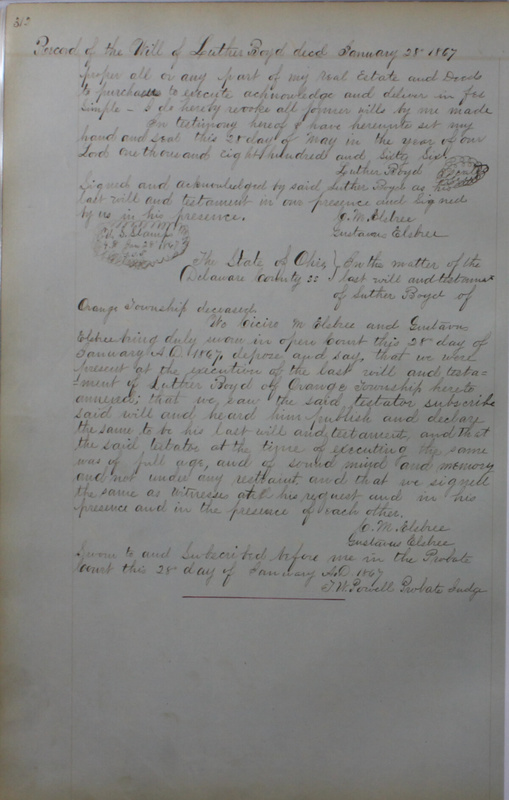 312
Record of the Will of Luther Boyd decd January 28 1867
proper all or any part of my real Estate and Deeds
to purchasers to execute acknowledge and deliver in fee
Simple - I do hereby revoke all former wills by me made
In testimony hereof I have hereunto set my
hand and seal this 28 day of May in the year of our
Lord one thousand Eight hundred and Sixty Six
Luther Boyd Seal
Signed and acknowledged by said Luther Boyd as his
last will and testament in our presence and Signed
by us in his presence.
C. M. Elsbree
Gustavus Elsbree
U. S. Stamp
Jan 28 1867
The State of Ohio } In the matter of the
Delaware County ss } last will and testament
of Luther Boyd of
Orange Township deceased.
We Cicero M Elsbree and Gustavus
Elsbree being duly sworn in open Court this 28 day of
January A.D. 1867, depose and say, that we were
present at the execution of the last will and testa=
=ment of Luther Boyd of Orange Township hereto
annexed; that we saw the said testator subscribe
said will and heard him publish and declare
the same to be his last will and testament, and that
the said testator at the time of executing the same
was of full age, and of sound mind and memory
and not under any restraint, and that we signed
the same as witnesses at his request and in his
presence and in the presence of each other.
C. M. Elsbree
Gustavus Elsbree
Sworn to and Subscribed before me in the Probate
Court this 28 day of January A.D. 1867
T. W. Powell Probate Judge